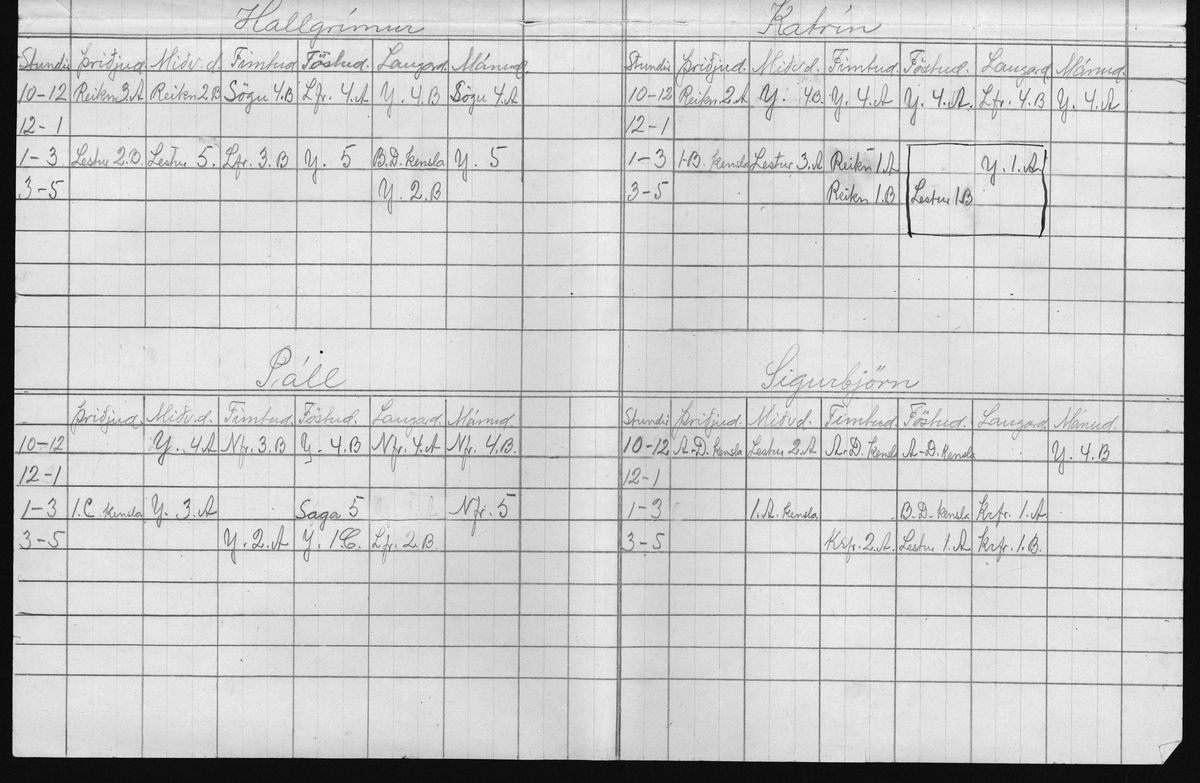 Hallgrímur
Stundir Þriðjud. Miðv.d. Fimtud. Föstud. Laugard. Mánud.
10-12 Reikn. 3.A Reikn 2.B Sögu 4.B Lfr. 4.A Y. 4.B Sögu 4.A
12-1
1-3 Lestur 2.B. Lestur 5. Lfr. 3.B Y. 5 B.D. kensla Y. 5
3-5 Y. 2.B
Katrín
Stundir Þriðjud. Miðv.d. Fimtud. Föstud. Laugard. Mánud.
10-12 Reikn. 2.A Y. 4B. Y. 4.A Y. 4.A. Lfr. 4.B Y. 4.A
12-1
1-3 1-B. kensla Lestur 3.A Reikn 1.A Y. 1.A.
3-5 Reikn 1.B Lestur 1.B
Páll
Þriðjud. Miðv.d. Fimtud. Föstud. Laugard. Mánud.
10-12 Y. 4.A Nfr. 3.B Y. 4.B Nfr. 4.A Nfr. 4.B.
12-1
1-3 1.C kensla Y. 3.A Saga 5 Nfr. 5
3-5 Y. 2.A Y. 1C. Lfr. 2.B.
Sigurbjörn
Stundir Þriðjud. Miðv.d. Fimtud. Föstud. Laugard. Mánud.
10-12 A-D. kensla Lestur 2.A A-D. kensla A-D. kensla Y. 4.B
12-1
1-3 1.A. kensla B-D. kensla Krfr. 1.A
3-5 Krfr. 2.A. Lestur 1.A Krfr. 1.B.